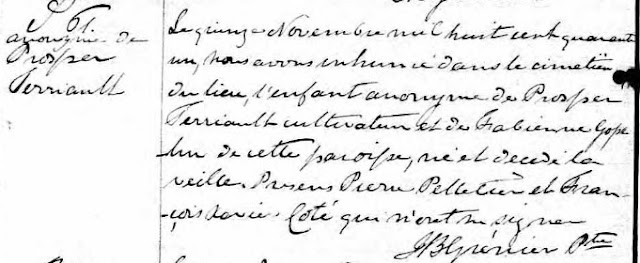 S
anonyme de
Prosper
Terriault
Le quinze Novembre mil huit cent quarant
un, nous avons inhumé dans le cimetièr
du lieu, l'enfant anonyme de Prosper
Terriault cultivateur et de Fabienne Gosse
lin de cette paroisse, né et decedé la
veille. Presens Pierre Pelletier et Fran-
-çois Xavier Coté qui n'ont su signer
JBGrénier Ptre